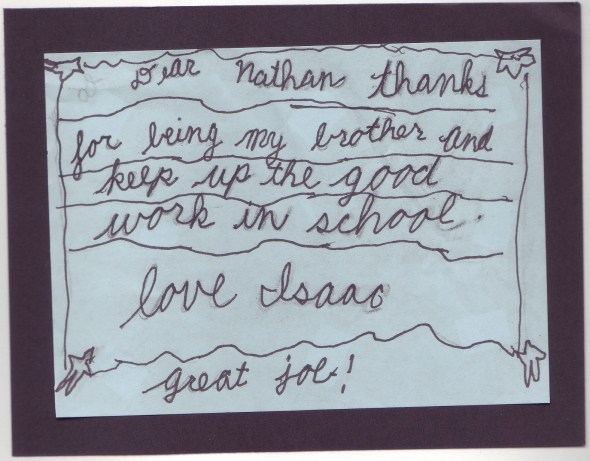 Dear Nathan thanks
for being my brother and
keep up the good
work in school.
love Isaac
great job!